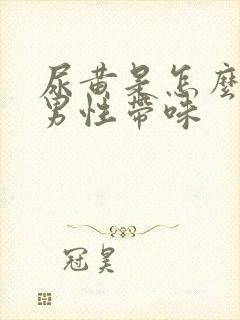 尿黄是怎麼
男性帶味
冠昊